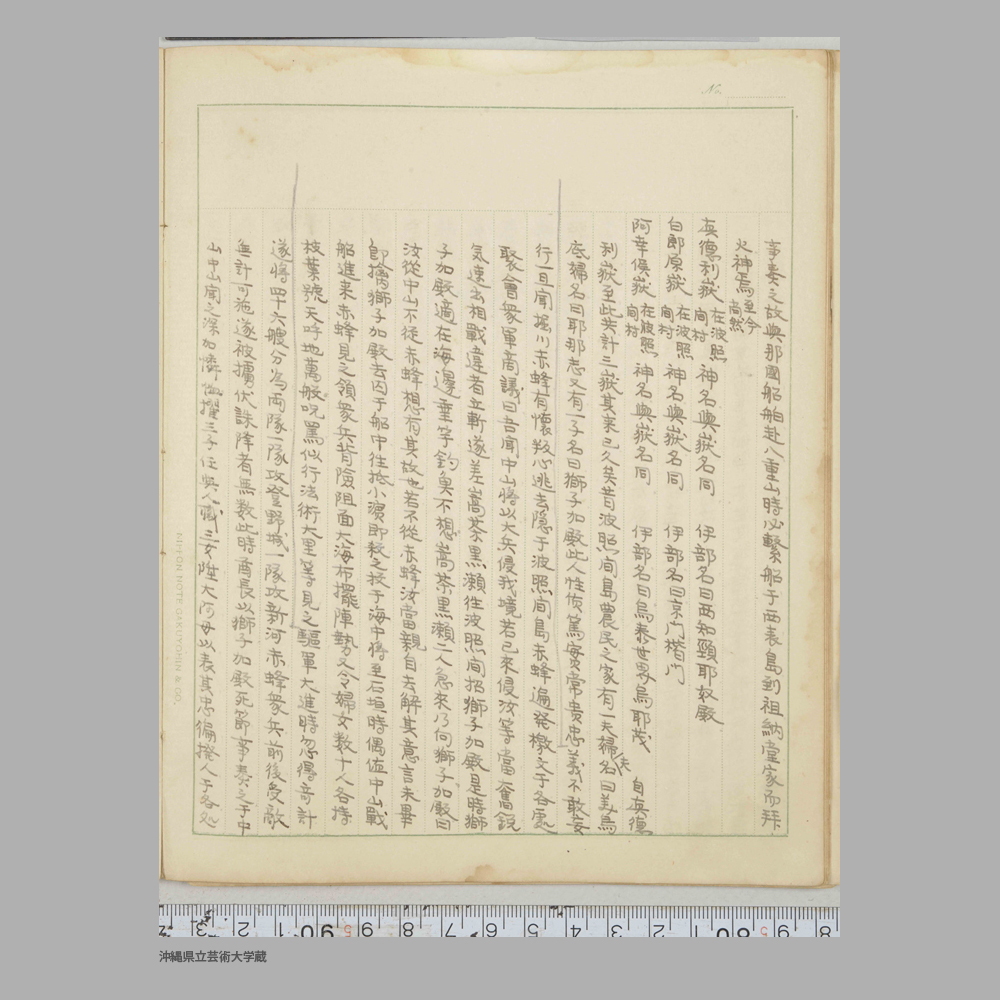 No.
事奏之故與那國船舶赴八重山時必繫船于西表島到祖納堂家而拜
火神焉至今尚然
真德利嶽 在波照間村 神名與嶽名同 伊部名曰西知頸耶奴殿
白郎原嶽 在波照間村 神名與嶽名同 伊部名曰京門楷門
阿幸俣嶽 在波照間村 神名與嶽名同 伊部名曰烏泰世界烏耶茂 自真德
利嶽至此共計三嶽其來已久矣昔波照間島農民之家有一夫婦夫名曰美烏
底婦名曰耶那志又有一子名曰獅子加殿此人性質篤實常貴忠義不敢妄
行一旦聞堀川赤蜂有懷叛心逃去隱于波照間島赤蜂遍発檄文于各處
聚會衆軍商議曰吾聞中山將以大兵侵我境若已來侵汝等當奮銳
気速去相戰違者立斬遂差嵩茶黒瀬往波照間招獅子加殿是時獅
子加殿適在海邊垂竿釣魚不想嵩茶黒瀬二人急來乃向獅子加殿曰
汝從中山不從赤蜂想有其故也若不從赤蜂汝當親自去解其意言未畢
即擒獅子加殿去囚于船中往抵小濱即殺之投于海中將至石垣時偶値中山戰
船進來赤蜂見之領衆兵背險阻面大海布擺陣勢又令婦女数十人各持
枝葉號天呼地萬般呪罵似行法術大里等見之驅軍大進時忽得奇計
遂將四十六艘分為両隊一隊攻登野城一隊攻新河赤蜂衆兵前後受敵
無計可施遂被擄伏誅降者無数此時酋長以獅子加殿死節事奏之于中
山中山聞之深加憐恤擢三子任與人職三女陞大阿母以表其忠徧撥人于各処
NIHON NOTE GAKUYOHIN & CO.
沖縄県立芸術大学蔵